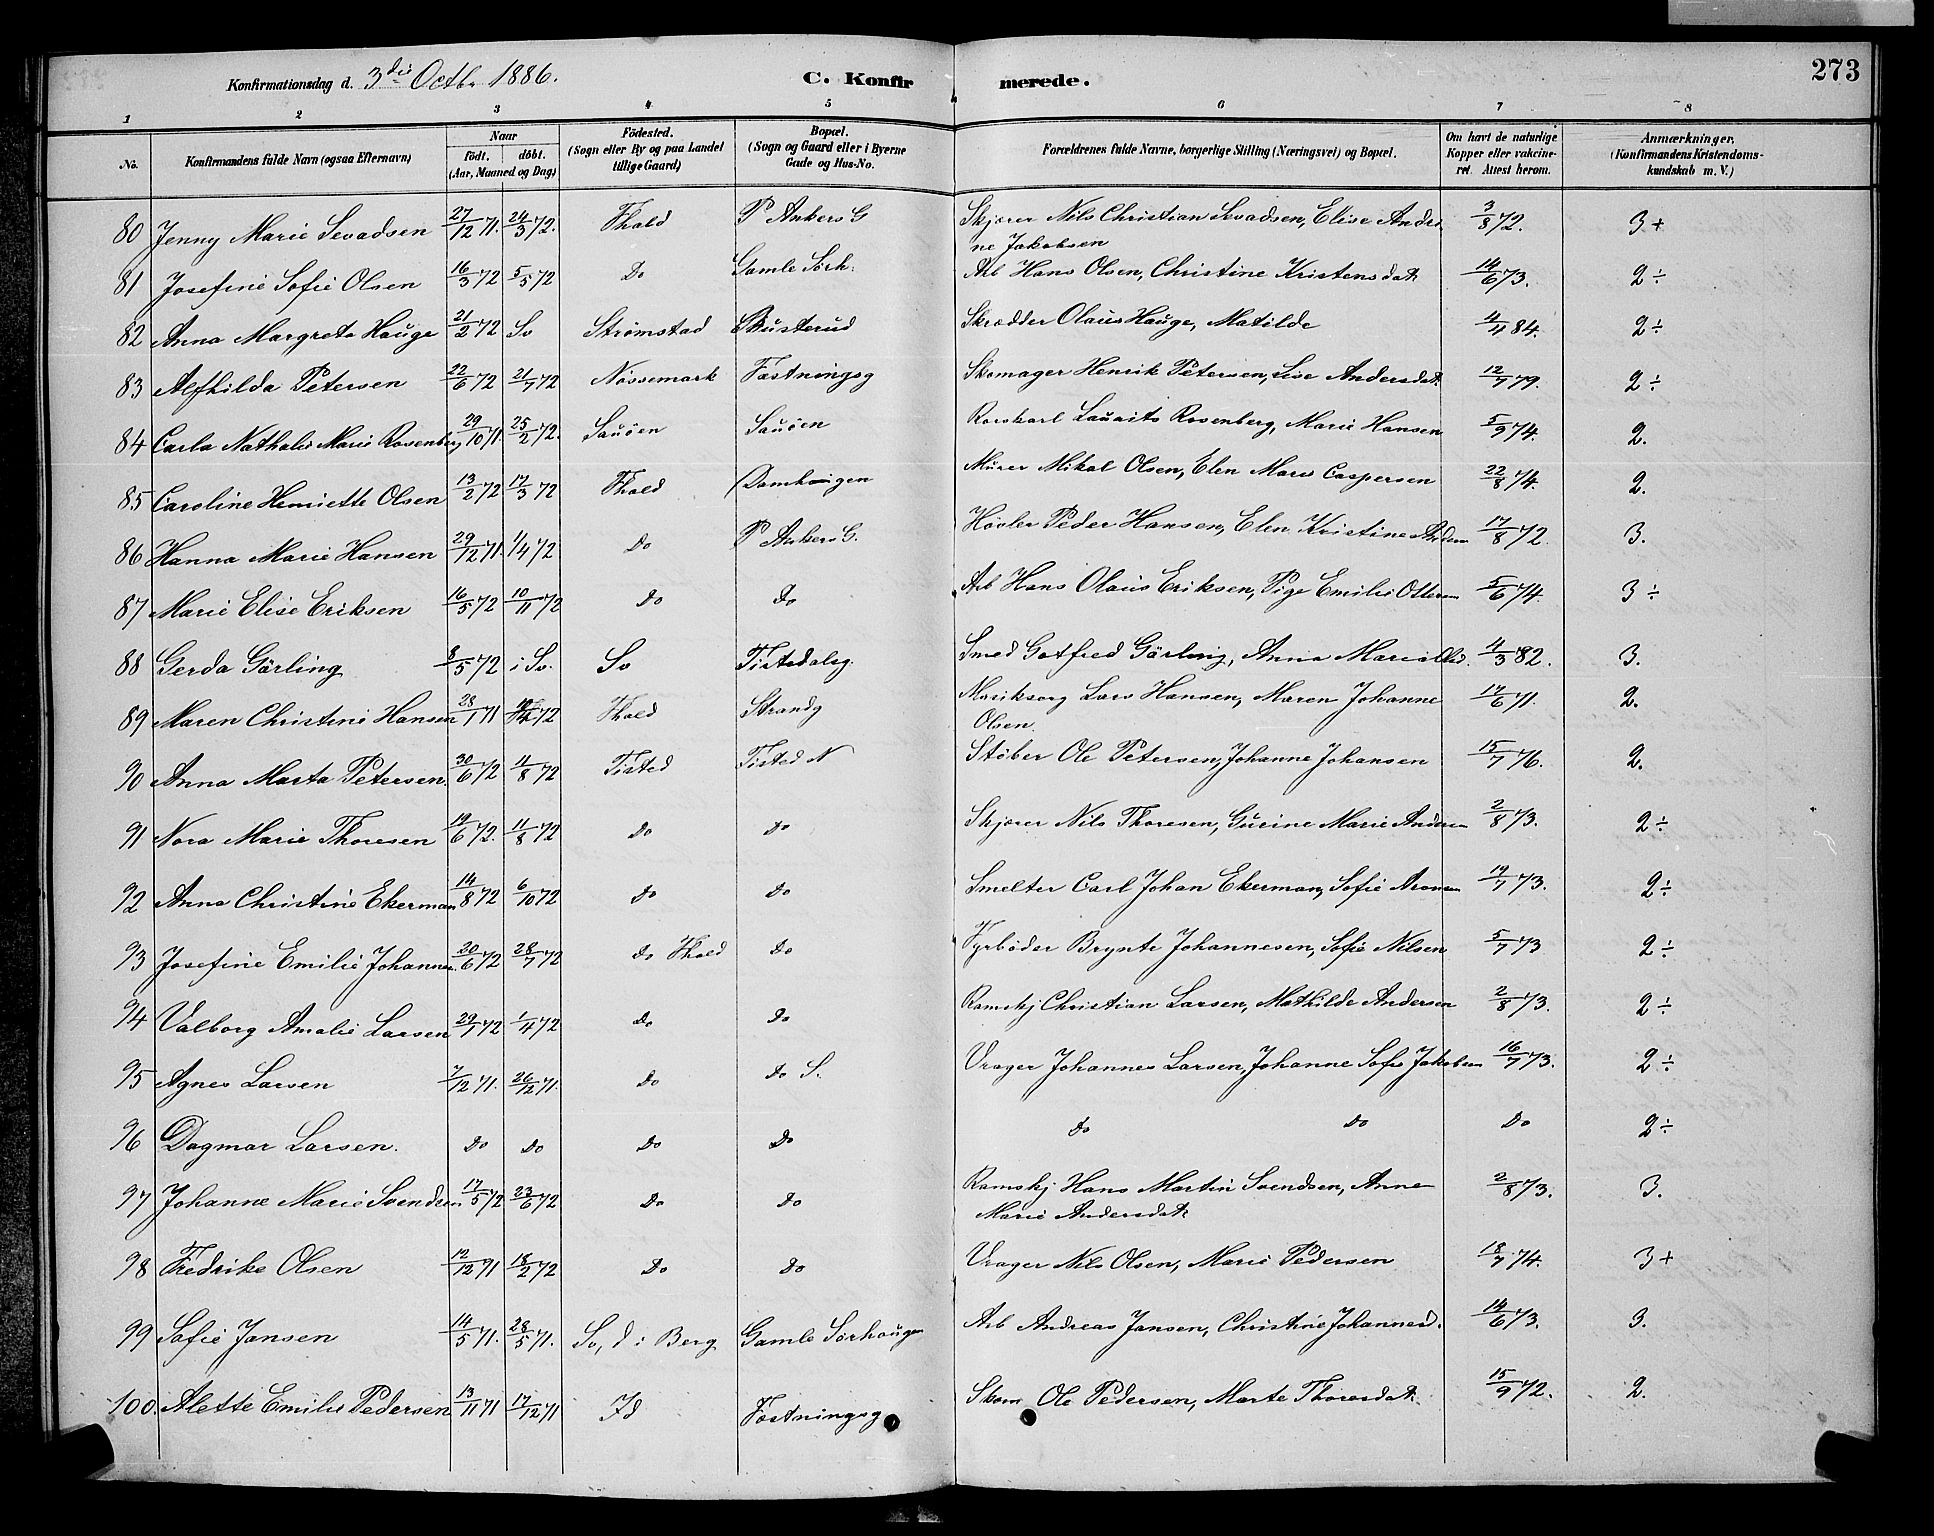 273
Konfirmationsdag d. 3die Octbr 1886. C. Konfirmerede.
1 2 3 4 5 6 7 8
No. Konfirmandens fulde Navn (ogsaa Efternavn) Naar födt. döbt. (Aar, Maaned og Dag) Födested. (Sogn eller By og paa Landet tillige Gaard) Bopæl. (Sogn og Gaard eller i Byerne Gade og Hus-No. Forældrenes fulde Navne, borgerlige Stilling (Næringsvei) og Bopæl. Om havt de naturlige Kopper eller vakcineret. Attest herom. Anmærkninger. (Konfirmandens Kristendomskundskab m. V.)
80 Jenny Marie Sevadsen 27/12 71. 24/3 72. Fhald P Ankers G Skjærer Nils Christian Sevadsen, Elise Andrine Jakobsen 3/8 72. 3+
81 Josefine Sofie Olsen 16/3 72 5/5 72 Do Gamle Sörh. Arb Hans Olsen, Christine Kristensdat. 14/6 73. 2÷
82 Anna Margrete Hauge 21/2 72 Sv Strömstad Busterud Skrædder Olaus Hauge, Matilde 4/11 84. 2÷
83 Alfhilda Petersen 22/6 72 21/7 72 Nössemark Fæstningsg Skomager Henrik Petersen, Lise Andersdat. 12/7 79. 2÷
84 Carla Nathalie Marie Rosenberg 29/10 71. 25/2 72. Sauöen Sauöen Rorskarl Lauritz Rosenberg, Marie Hansen 5/9 74. 2.
85 Caroline Henriette Olsen 13/2 72 17/3 72 Fhald Damhaugen Murer Mikal Olsen, Elen Marie Caspersen 22/8 74. 2.
86 Hanna Marie Hansen 29/12 71 1/4 72 Do P Ankers G. Hövler Peder Hansen, Elen Kristine Andersen 17/8 72. 3.
87 Marie Elise Eriksen 16/5 72 10/11 72 Do Do Arb Hans Olaus Eriksen, Pige Emilie Ottersen 5/6 74. 3÷
88 Gerda Görling 8/5 72 i Sv. Sv Tistedalsg. Smed Gotfred Görling, Anna Maria 4/3 82. 3.
89 Maren Christine Hansen 28/1 71 72 Fhald Strandg Lars Hansen, Maren Johanne Olsen. 17/6 71. 2.
90 Anna Marta Petersen 30/6 72 11/8 72 Tisted Tisted N Stöber Ole Petersen, Johanne Johansen 15/7 76. 2.
91 Nora Marie Thoresen 19/6 72. 11/8 72 Do Do Skjærer Nils Thoresen, Gurine Marie Andersen 2/8 73. 2÷
92 Anna Christine Ekerman 14/8 72 6/10 72 Do Do Smelter Carl Johan Ekerman, Sofie Aronsen 19/7 73. 2÷
93 Josefine Emilie Johannes. 20/6 72 28/7 72 Do Fhald Do Fyrböder Brynte Johannesen, Sofie Nilsen 5/7 73 2÷
94 Valborg Amalie Larsen 29/1 72 1/4 72 Do Do Ramskj Christian Larsen, Mathilde Andersen 2/8 73. 2÷
95 Agnes Larsen 7/12 71. 26/12 71. Do Do S. Vrager Johannes Larsen, Johanne Sofie Jakobsen 16/7 73. 2÷
96 Dagmar Larsen. Do Do Do Do Do Do Do 2÷
97 Johanne Marie Svendsen 17/5 72 23/6 72 Do Do Ramskj Hans Martin Svendsen, Anne Marie Andersdat. 2/8 73. 3.
98 Fredrike Olsen 12/12 71 18/2 72 Do Do Vrager Nils Olsen, Marie Pedersen 18/7 74. 3+
99 Sofie Jansen 14/5 71. 28/5 71. Sv, d i Berg Gamle Sörhaugen Arb Andreas Jansen, Christine Johannesd. 14/6 73. 3.
100. Alette Emilie Pedersen 13/11 71 17/12 71 Id Fæstningsg Skom Ole Pedersen, Marte Thoresdat. 15/9 72. 2.